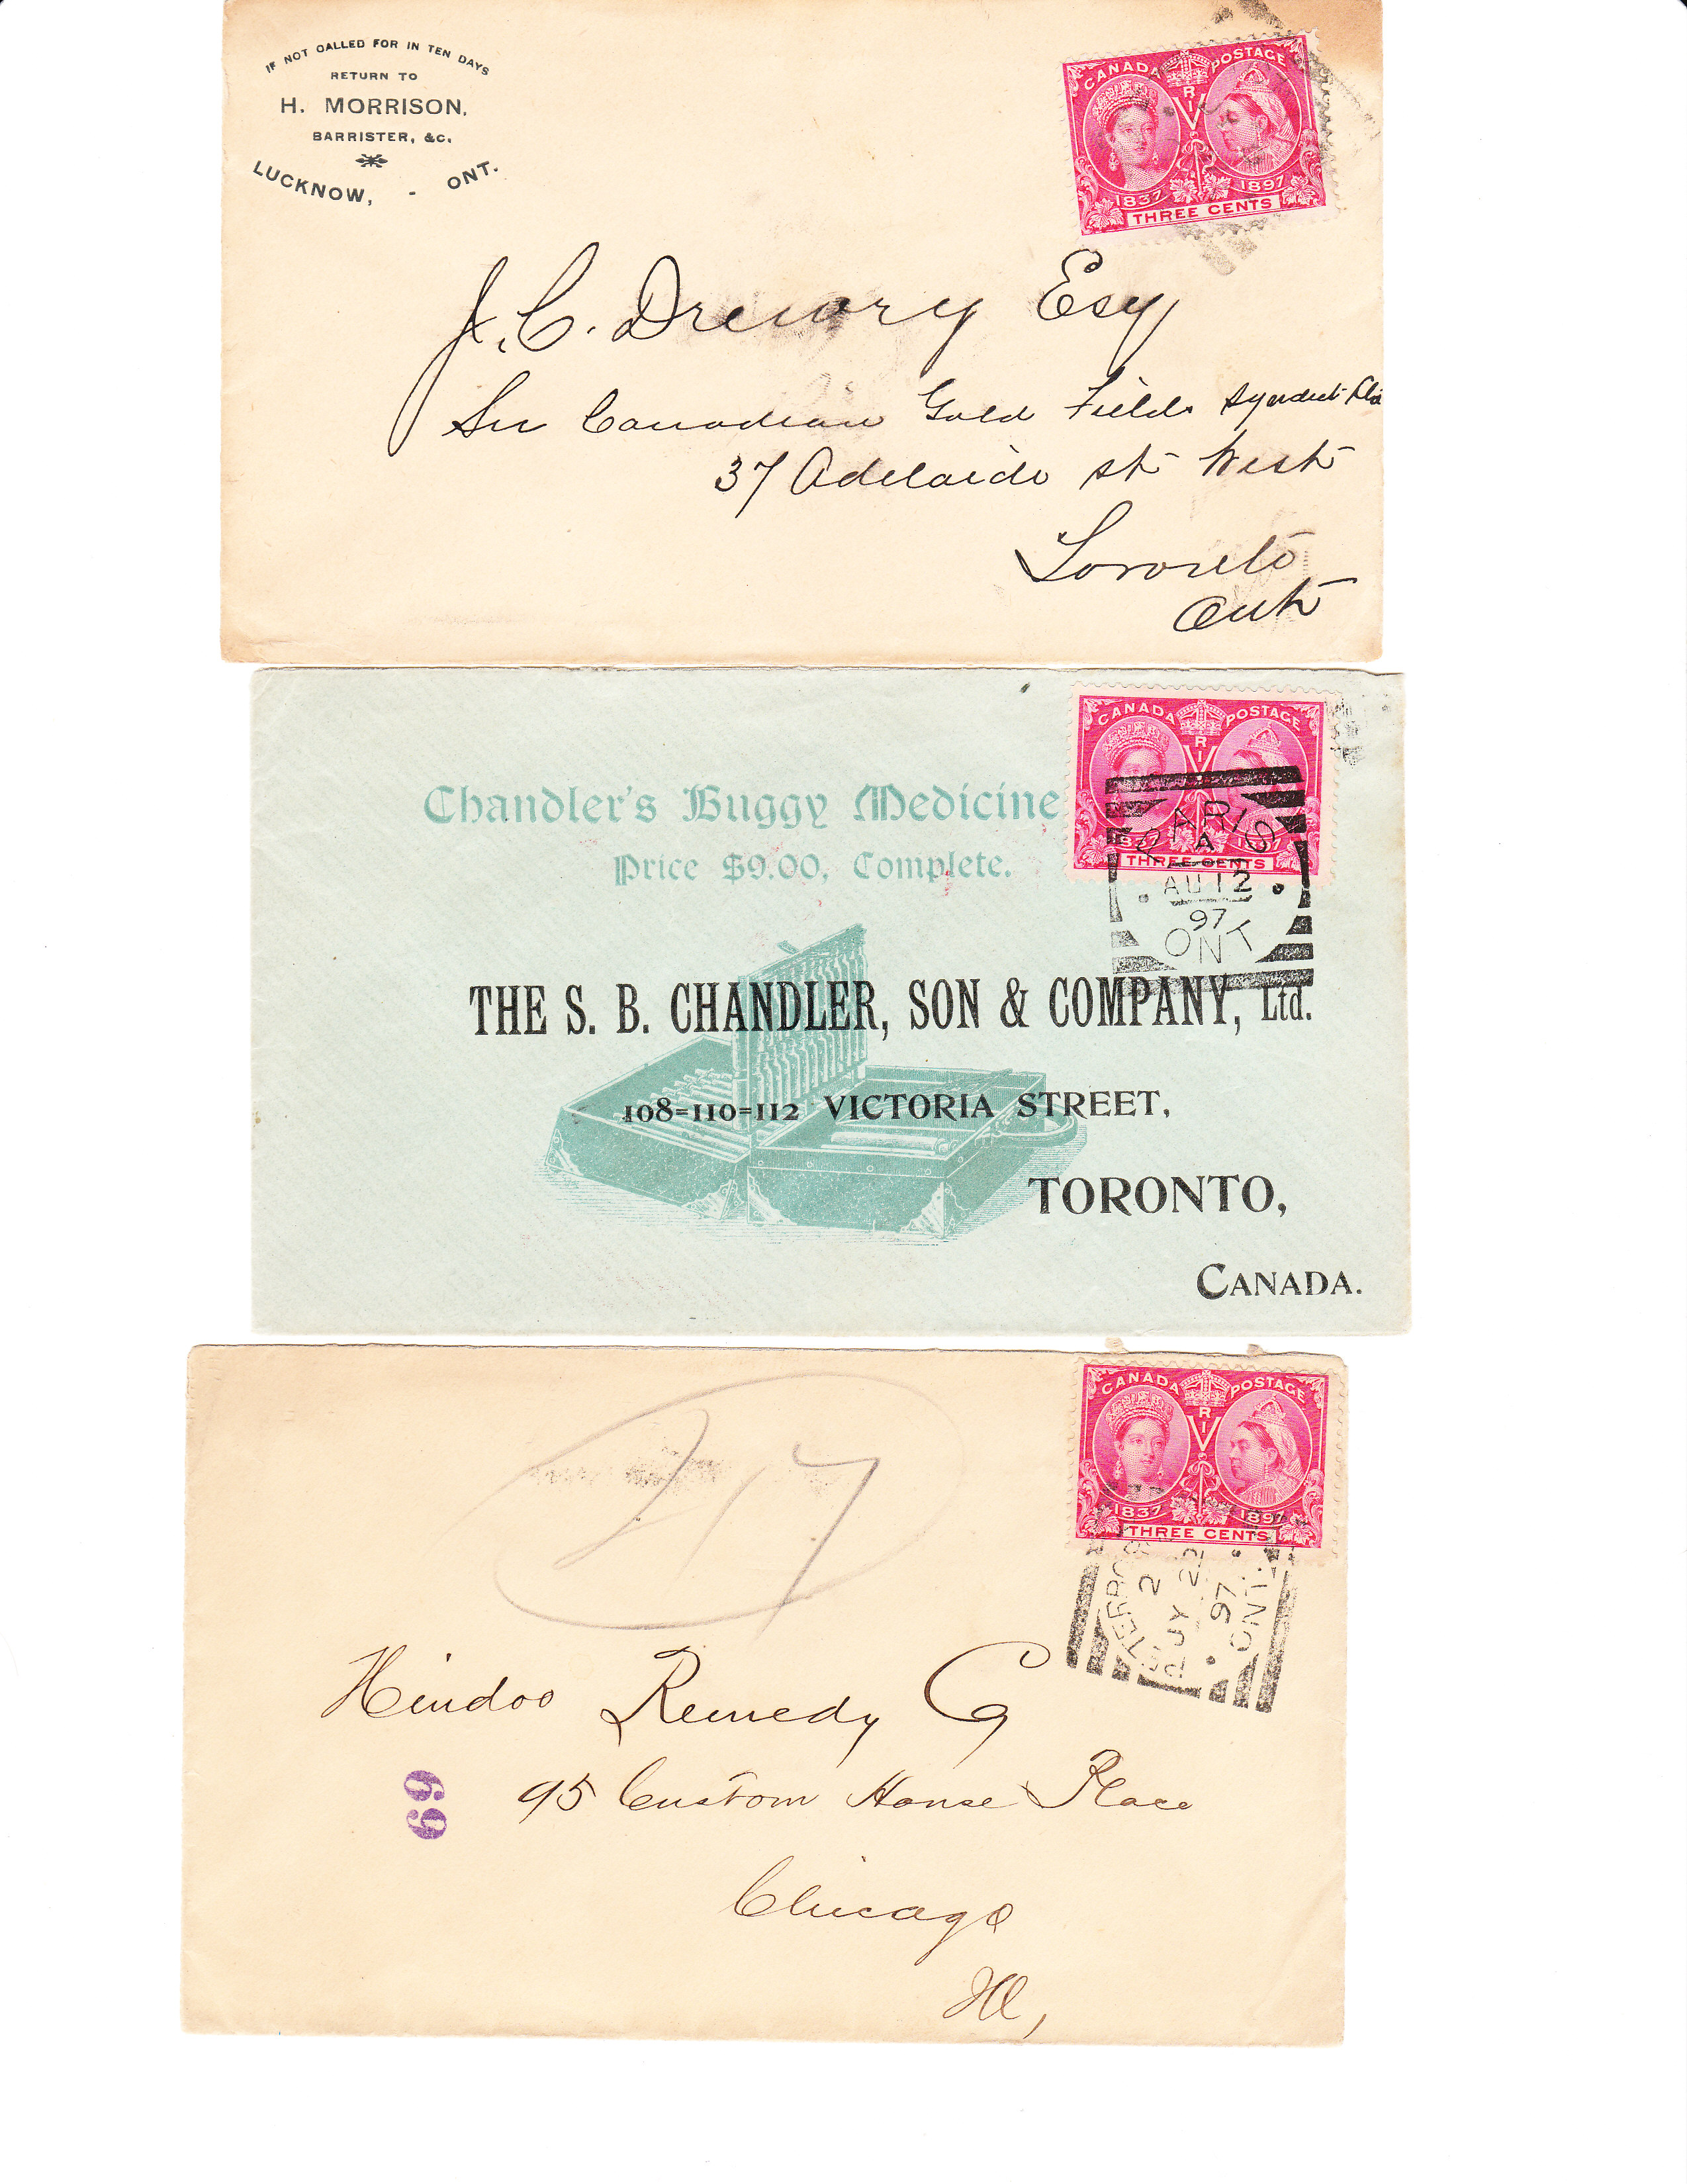 IF NOT CALLED FOR IN TEN DAYS
RETURN TO
H. MORRISON,
BARRISTER, &C.
LUCKNOW, - ONT.
CANADA POSTAGE
V R I
1837 1897
THREE CENTS
J. C. Drewry Esq
Canadian Gold Fields Syndicate
37 Adelaide St West
Toronto
Ont
CANADA POSTAGE
V R I
1837 1897
THREE CENTS
PARIS
A
AU 12
97
ONT
Chandler's Buggy Medicine
Price $9.00, Complete.
THE S. B. CHANDLER, SON & COMPANY, Ltd.
108=110=112 VICTORIA STREET,
TORONTO,
CANADA.
CANADA POSTAGE
V R I
1837 1897
THREE CENTS
JY 22
97
ONT.
Hindoo Remedy Co
95 Custom House Place
69
Chicago
Ill,